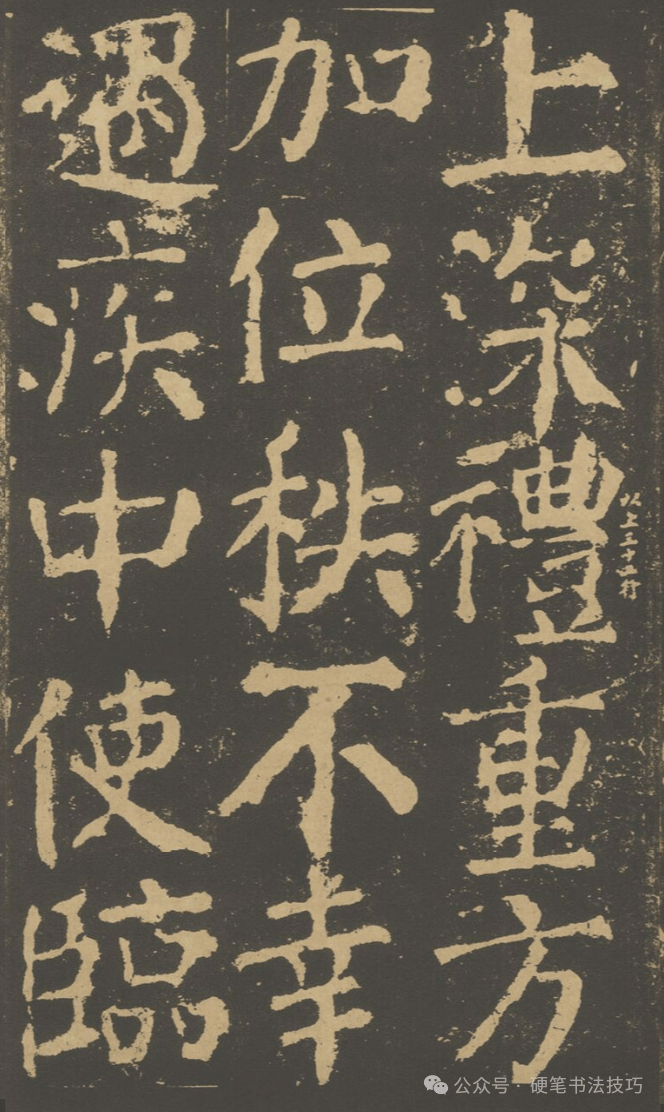 上深禮重方
以上三十五行
加位秩不幸
遘疾中使臨
公众号·硬笔书法技巧